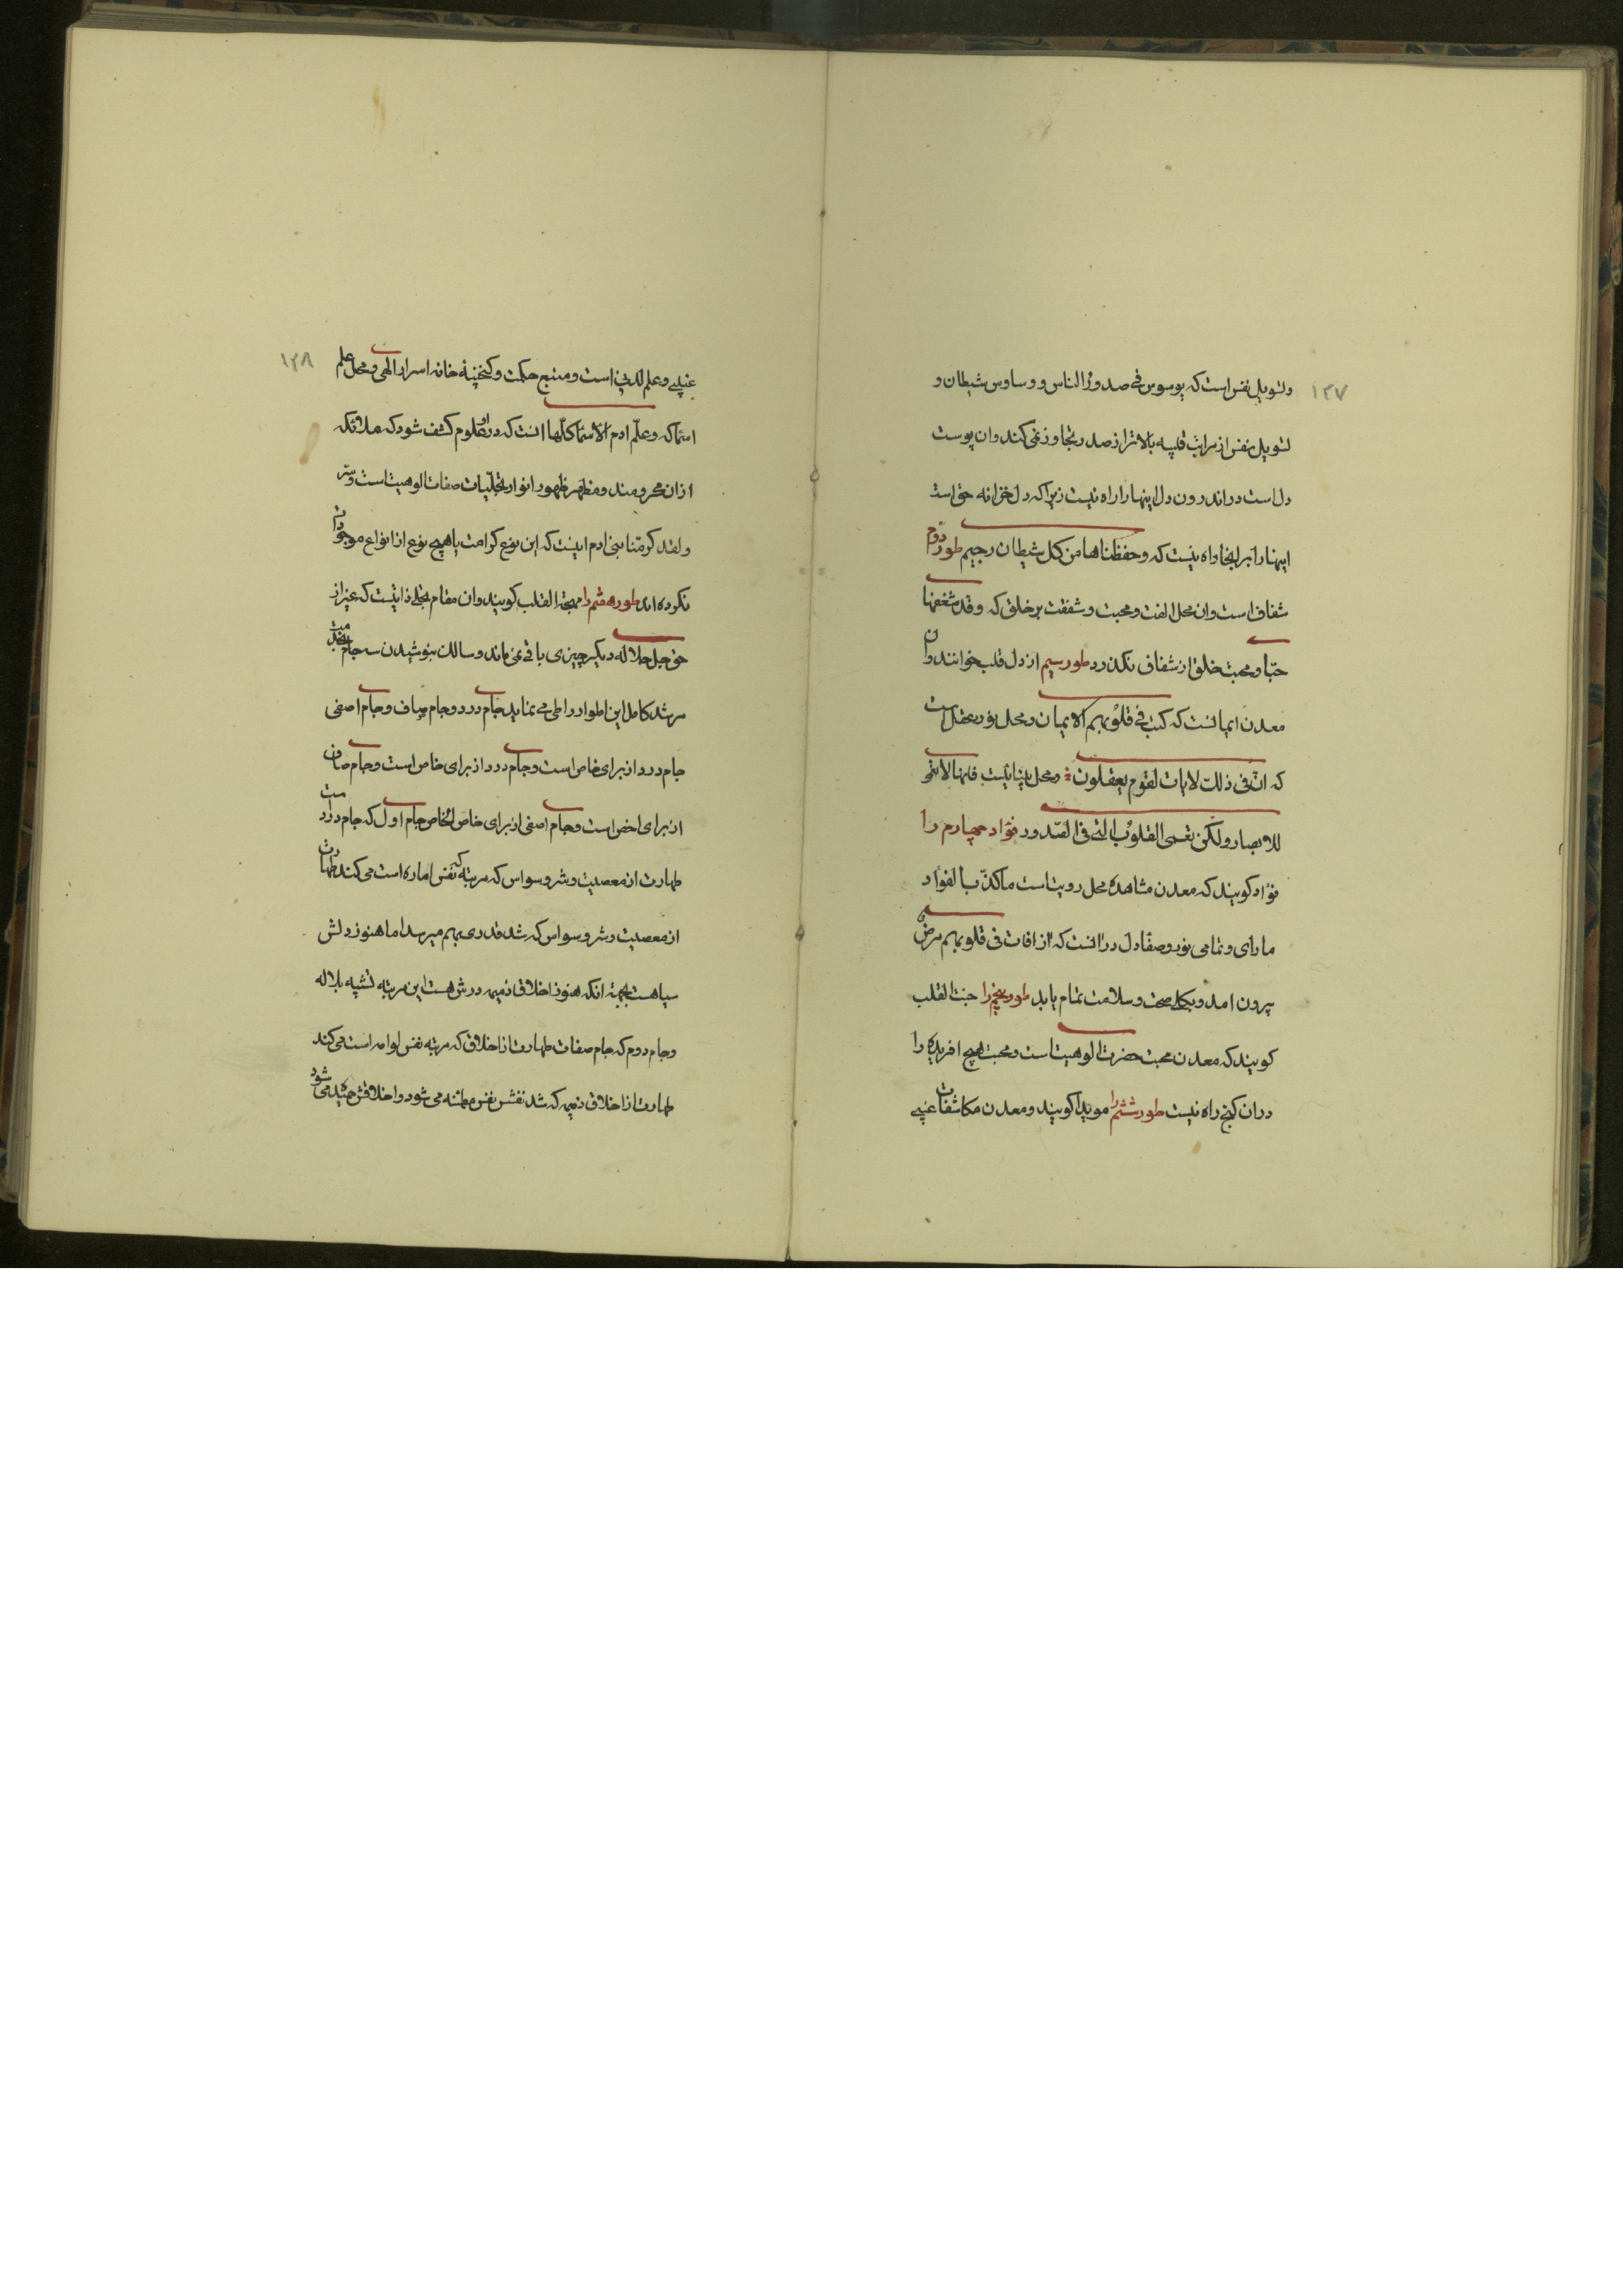 ١٢٧
وتسویل نفس است که یوسوس فی صدور الناس ووساوس شیطان و
تسویل نفس از مراتب قلبیه بالاتر از صدر تجاوز نمی کند وان پوست
دل است در اندرون دل اینها را راه نیست زیرا که دل خزانه حق است
اینها را بر اینجا راه نیست که وحفظناها من کل شیطان رجیم طور دوم
شغاف است وان محل الفت ومحبت وشفقت بر خلق که وقد شغفها
حبّا ومحبت خلق از شغاف نکذرد طور سیم از دل قلب خوانند وان
معدن ایمانست که کتب فی قلوبهم الایمان ومحل نور عقل است
که انّ فی ذلک لایات لقوم یعقلون ومحل بینائیست فانها لا تعمی
للابصار ولکن تعمی القلوب التی فی الصّدور فؤاد چهارم را
فؤاد کویند که معدن مشاهده محل رویت است ما کذب الفواد
ما رای وتمامی نور وصفا دل در انست که از افات فی قلوبهم مرض
بیرون امد وبکلی صحت وسلامت تمام یابد طور پنجم را حبت القلب
کویند که معدن محبت حضرت الوهیت است ومحبت هیچ افریده را
دران کنج راه نیست طور ششم را سویدا کویند ومعدن مکاشفات غیبی
١٢٨
غیبی وعلم لدنی است ومنبع حکمت وکنجینه خانه اسرار الهی ومحل علم
اسما که وعلّم ادم الاسماء کلّها انست که در او علوم کشف شود که ملائکه
از ان محرومند ومظهر ظهور انوار تجلّیات صفات الوهیت است وسّر
ولقد کرمّنا بنی ادم اینست که این نوع کرامت با هیچ نوع از انواع موجودات
نکرده اند طور هشم را مهجة القلب کویند وان مقام تجلی ذاتیست که غیر از
حق جل جلاله دیکر چیزی باقی نمی ماند وسالک بنوشیدن سه جام بخدمت
مرشد کامل این اطوار را طی می نماید جام درد وجام صاف وجام اصفی
جام درد از برای خاص است وجام درد از برای خاص است وجام صاف
از برای اخص است وجام اصفی از برای خاص الخاص جام اول که جام درد است
طهارت از معصیت وشر وسواس که مرتبه که نفس اماره است می کند طهارت
از معصیت وشر وسواس که شد قدری بهم میرسد اما هنوز دلش
سیاهست بجهة انکه هنوز اخلاق ذمیمه درش هست این مرتبه تشبیه بلاله
وجام دوم که جام صفات طهارت از اخلاق که مرتبه نفس لوامه است می کند
طهارت از اخلاق ذمیمه که شد نفسش نفس مطمئنه می شود واخلاقش حمیده می شود